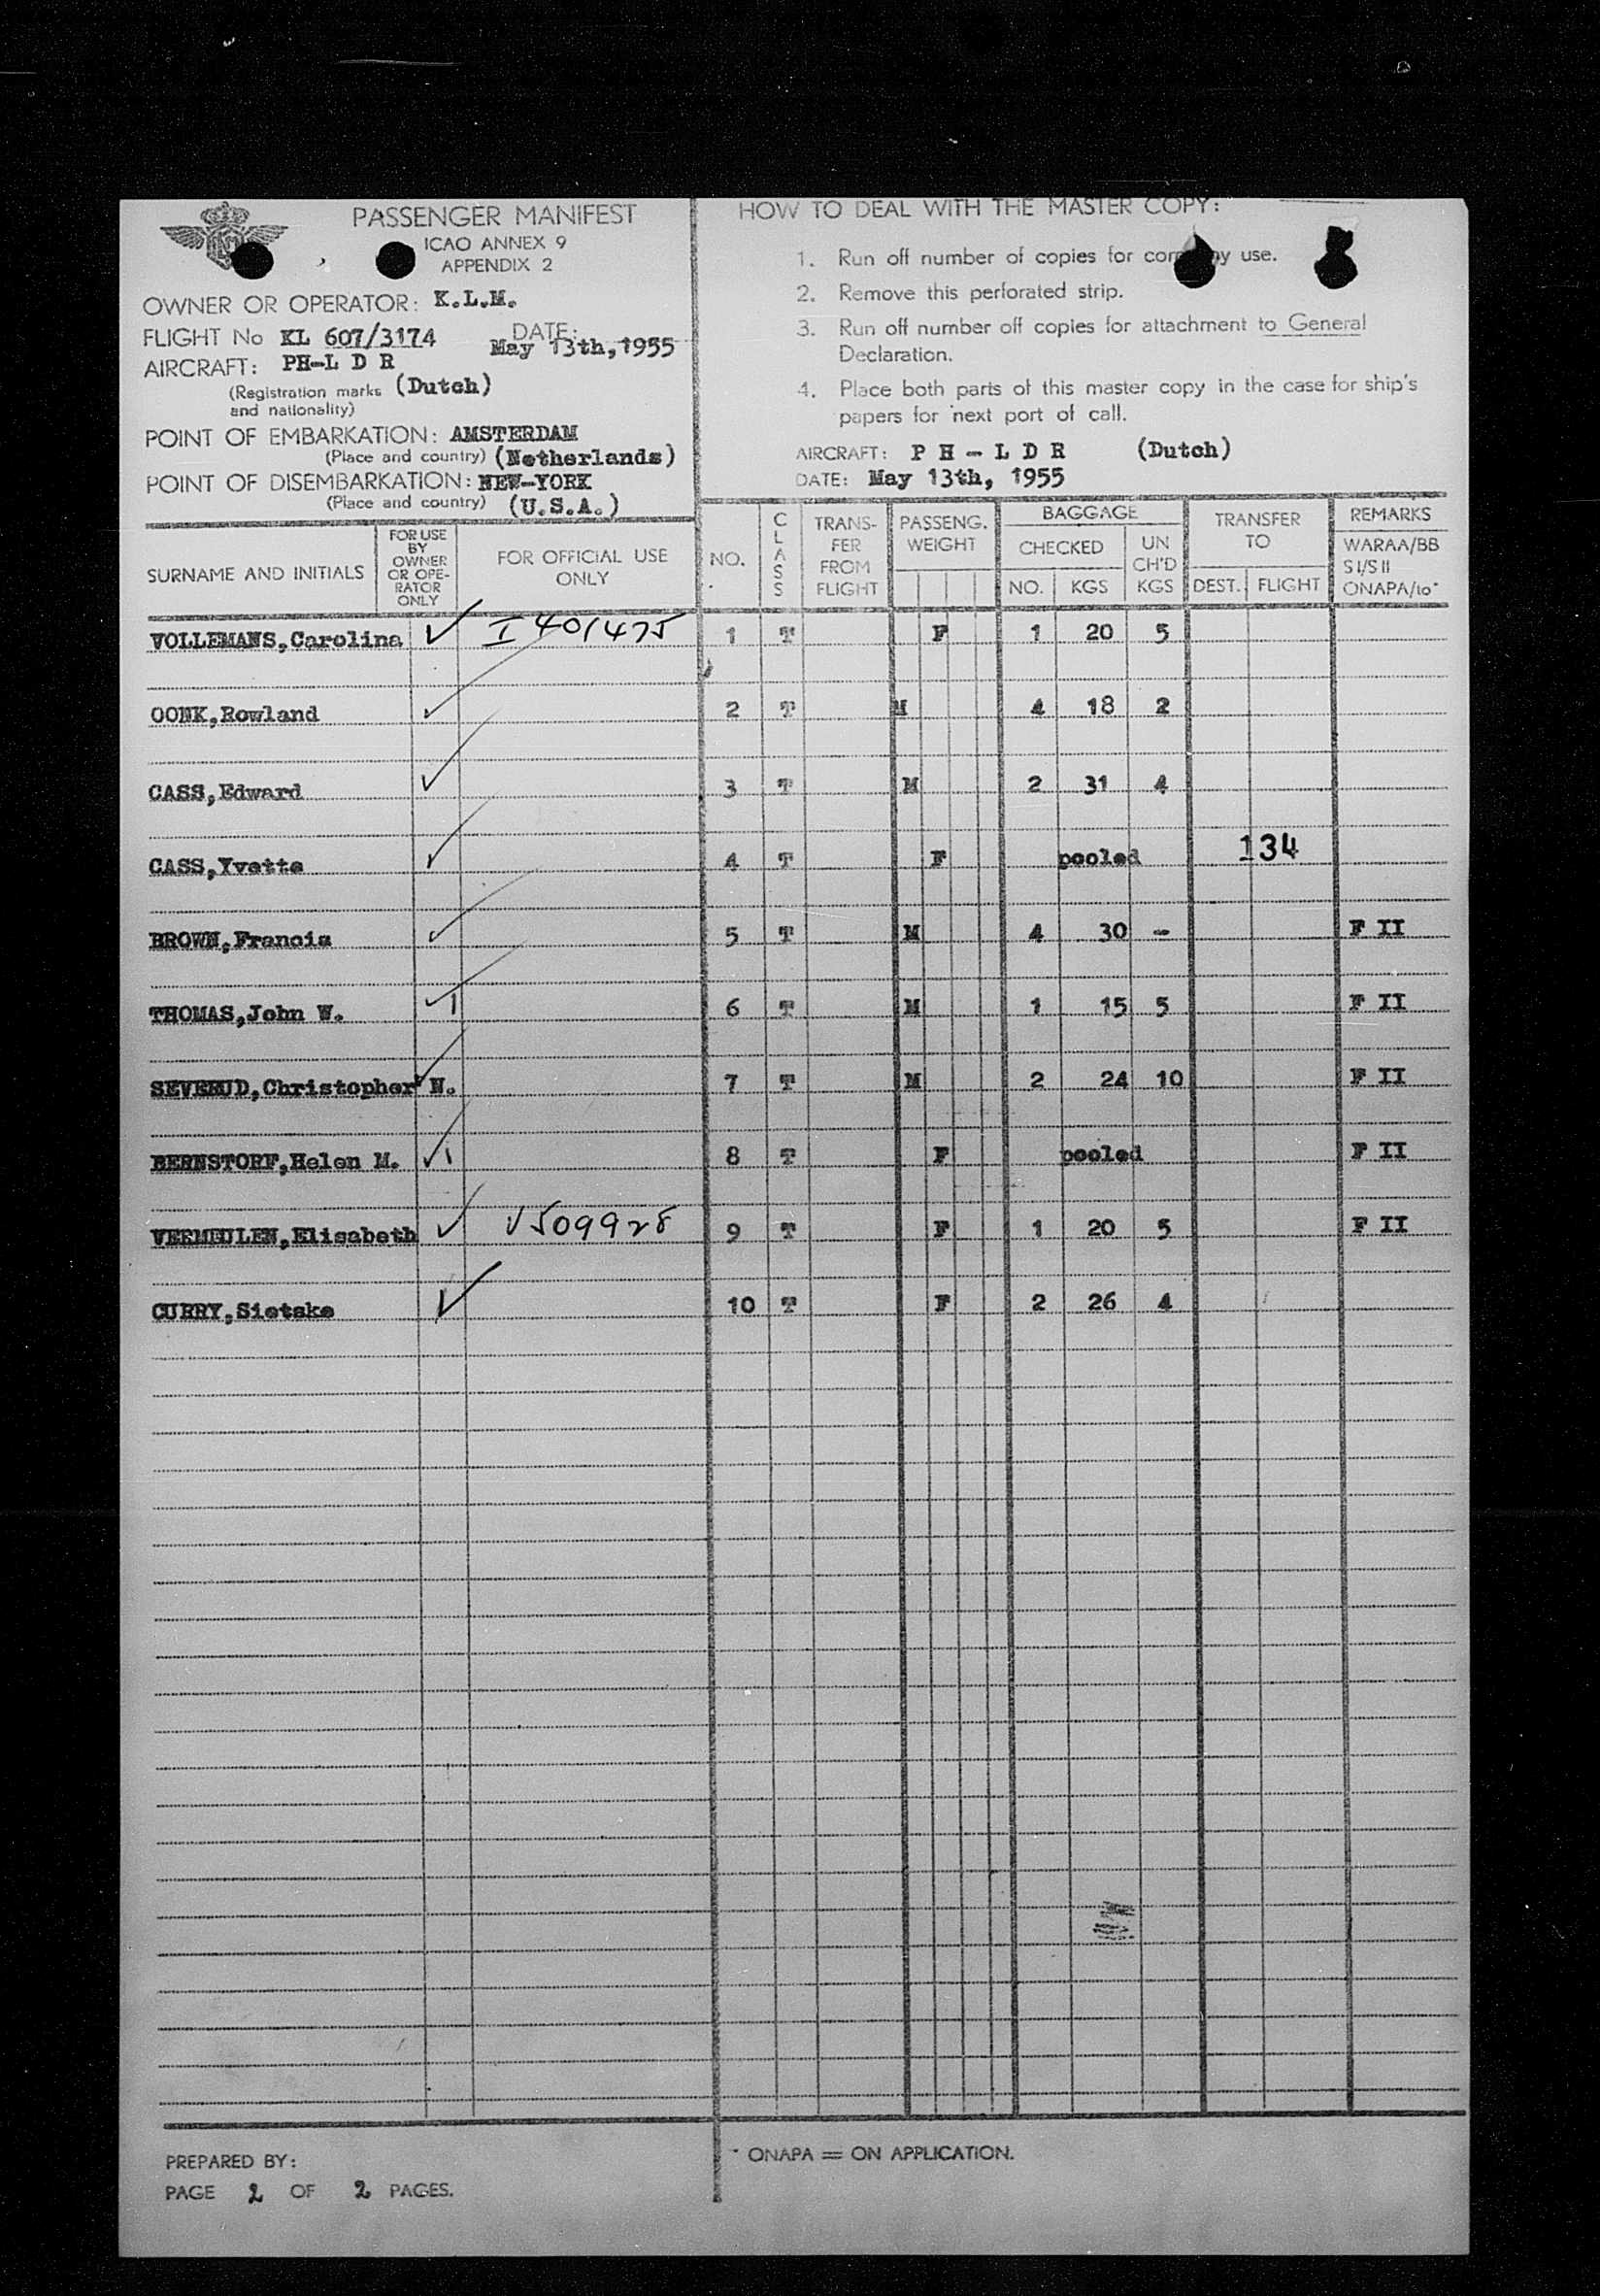 PASSENGER MANIFEST
ICAO ANNEX 9
APPENDIX 2
OWNER OR OPERATOR: K.L.M.
FLIGHT No KL 607/3174 DATE: May 13th, 1955
AIRCRAFT: PH-L D R
(Registration marks (Dutch)
and nationality)
POINT OF EMBARKATION: AMSTERDAM
(Place and country) (Netherlands)
POINT OF DISEMBARKATION: NEW-YORK
(Place and country) (U.S.A.)
HOW TO DEAL WITH THE MASTER COPY:
1. Run off number of copies for company use.
2. Remove this perforated strip.
3. Run off number off copies for attachment to General
Declaration.
4. Place both parts of this master copy in the case for ship's
papers for next port of call.
AIRCRAFT: P H - L D R (Dutch)
DATE: May 13th, 1955
SURNAME AND INITIALS
FOR USE
BY
OWNER
OR OPE-
RATOR
ONLY
FOR OFFICIAL USE
ONLY
NO.
CLASS
TRANS-
FER
FROM
FLIGHT
PASSENG.
WEIGHT
BAGGAGE
CHECKED
NO. KGS
UN
CH'D
KGS
TRANSFER
TO
DEST. FLIGHT
REMARKS
WARAA/BB
S I/S II
ONAPA/10*
VOLLEMANS,Carolina I 401475 1 T F 1 20 5
OONK,Rowland 2 T M 4 18 2
CASS,Edward 3 T M 2 31 4
CASS,Yvette 4 T F pooled 134
BROWN,Francis 5 T M 4 30 - F II
THOMAS,John W. 6 T M 1 15 5 F II
SEVERUD,Christopher N. 7 T M 2 24 10 F II
BERNSTORF,Helen M. 8 T F pooled F II
VERMEULEN,Elisabeth V509928 9 T F 1 20 5 F II
CURRY,Sietske 10 T F 2 26 4
PREPARED BY:
PAGE 2 OF 2 PAGES.
* ONAPA = ON APPLICATION.